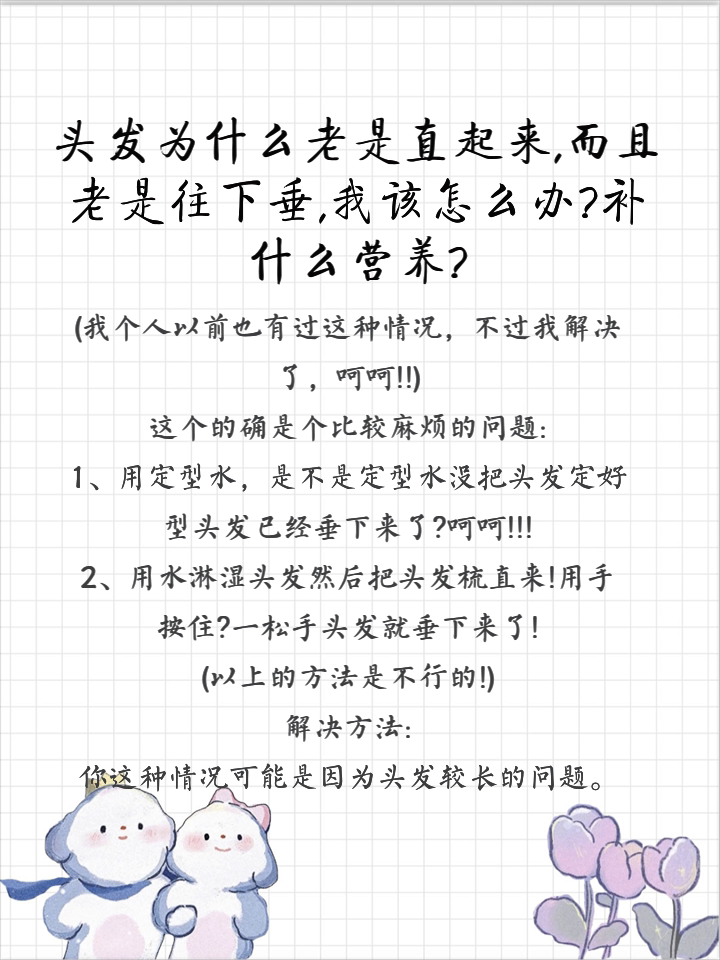 头发为什么老是直起来,而且
老是往下垂,我该怎么办?补
什么营养?
(我个人以前也有过这种情况，不过我解决
了，呵呵!!)
这个的确是个比较麻烦的问题:
1、用定型水，是不是定型水没把头发定好
型头发已经垂下来了?呵呵!!!
2、用水淋湿头发然后把头发梳直来!用手
按住?一松手头发就垂下来了!
(以上的方法是不行的!)
解决方法:
你这种情况可能是因为头发较长的问题。